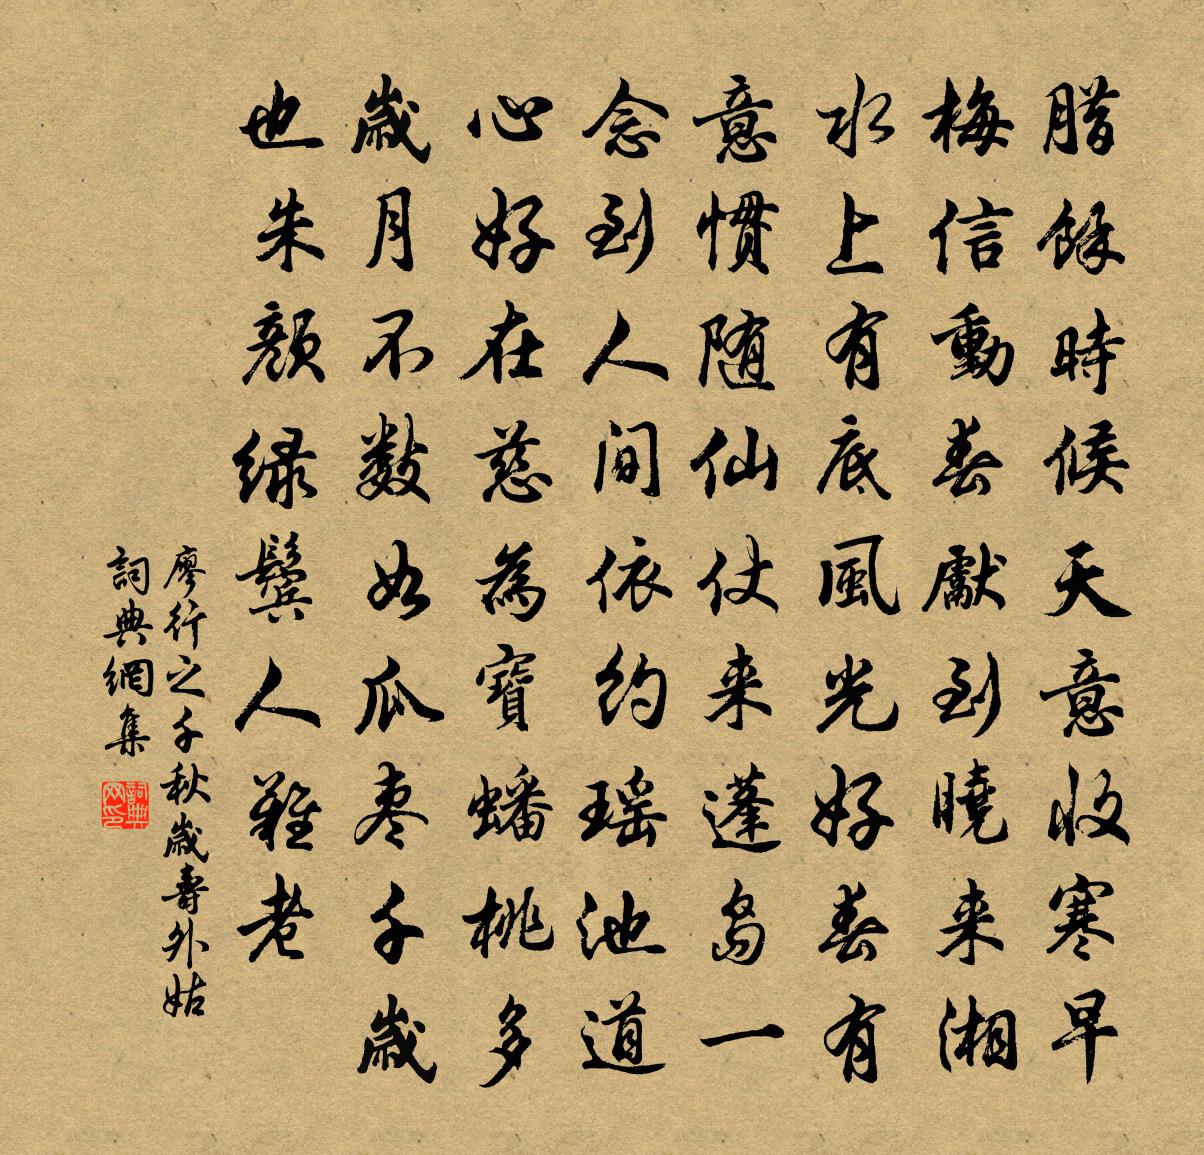 腊餘時候天意收寒早
梅信動春獻到曉来湘
水上有底風光好春有
意慣随仙仗来蓬島一
念到人間依約瑶池道
心好在慈為寶蟠桃多
歲月不數如瓜枣千歲
也朱顔緑鬓人難老
廖行之千秋歲壽外姑
詞典網集
詞典网印